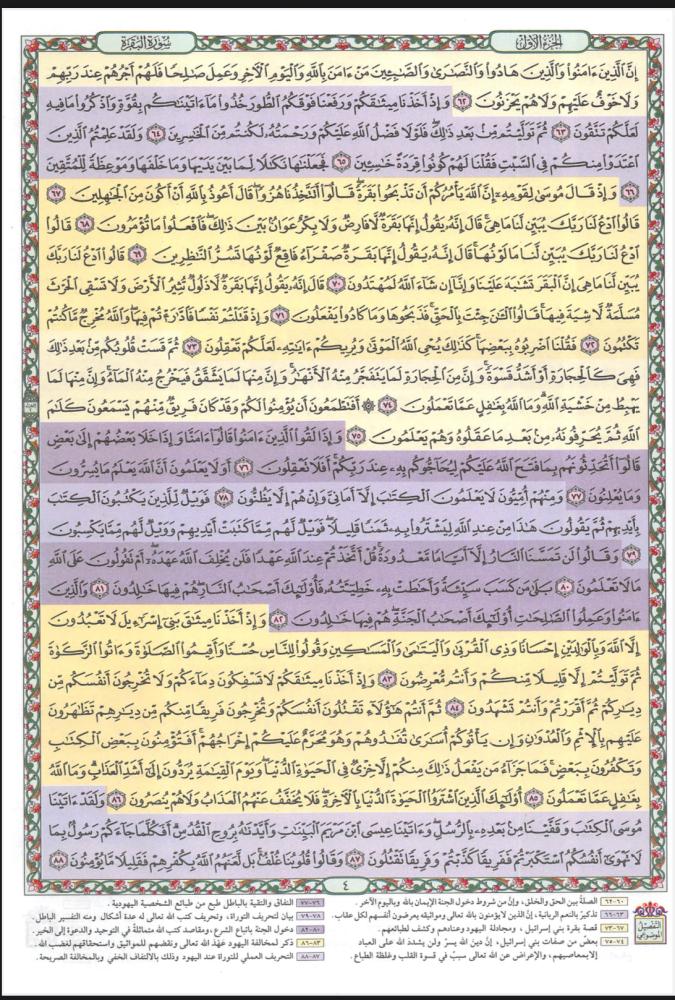 الجزء الأول
سورة البقرة
إِنَّ الَّذِينَ ءَامَنُوا وَالَّذِينَ هَادُوا وَالنَّصَارَىٰ وَالصَّابِئِينَ مَنْ ءَامَنَ بِاللَّهِ وَالْيَوْمِ الْآخِرِ وَعَمِلَ صَالِحًا فَلَهُمْ أَجْرُهُمْ عِندَ رَبِّهِمْ
وَلَا خَوْفٌ عَلَيْهِمْ وَلَا هُمْ يَحْزَنُونَ ٦٢ وَإِذْ أَخَذْنَا مِيثَاقَكُمْ وَرَفَعْنَا فَوْقَكُمُ الطُّورَ خُذُوا مَا ءَاتَيْنَاكُم بِقُوَّةٍ وَاذْكُرُوا مَا فِيهِ
لَعَلَّكُمْ تَتَّقُونَ ٦٣ ثُمَّ تَوَلَّيْتُم مِّن بَعْدِ ذَٰلِكَ فَلَوْلَا فَضْلُ اللَّهِ عَلَيْكُمْ وَرَحْمَتُهُ لَكُنتُم مِّنَ الْخَاسِرِينَ ٦٤ وَلَقَدْ عَلِمْتُمُ الَّذِينَ
اعْتَدَوْا مِنكُمْ فِي السَّبْتِ فَقُلْنَا لَهُمْ كُونُوا قِرَدَةً خَاسِئِينَ ٦٥ فَجَعَلْنَاهَا نَكَالًا لِّمَا بَيْنَ يَدَيْهَا وَمَا خَلْفَهَا وَمَوْعِظَةً لِّلْمُتَّقِينَ
٦٦ وَإِذْ قَالَ مُوسَىٰ لِقَوْمِهِ إِنَّ اللَّهَ يَأْمُرُكُمْ أَن تَذْبَحُوا بَقَرَةً قَالُوا أَتَتَّخِذُنَا هُزُوًا قَالَ أَعُوذُ بِاللَّهِ أَنْ أَكُونَ مِنَ الْجَاهِلِينَ ٦٧
قَالُوا ادْعُ لَنَا رَبَّكَ يُبَيِّن لَّنَا مَا هِيَ قَالَ إِنَّهُ يَقُولُ إِنَّهَا بَقَرَةٌ لَّا فَارِضٌ وَلَا بِكْرٌ عَوَانٌ بَيْنَ ذَٰلِكَ فَافْعَلُوا مَا تُؤْمَرُونَ ٦٨ قَالُوا
ادْعُ لَنَا رَبَّكَ يُبَيِّن لَّنَا مَا لَوْنُهَا قَالَ إِنَّهُ يَقُولُ إِنَّهَا بَقَرَةٌ صَفْرَاءُ فَاقِعٌ لَّوْنُهَا تَسُرُّ النَّاظِرِينَ ٦٩ قَالُوا ادْعُ لَنَا رَبَّكَ
يُبَيِّن لَّنَا مَا هِيَ إِنَّ الْبَقَرَ تَشَابَهَ عَلَيْنَا وَإِنَّا إِن شَاءَ اللَّهُ لَمُهْتَدُونَ ٧٠ قَالَ إِنَّهُ يَقُولُ إِنَّهَا بَقَرَةٌ لَّا ذَلُولٌ تُثِيرُ الْأَرْضَ وَلَا تَسْقِي الْحَرْثَ
مُسَلَّمَةٌ لَّا شِيَةَ فِيهَا قَالُوا الْآنَ جِئْتَ بِالْحَقِّ فَذَبَحُوهَا وَمَا كَادُوا يَفْعَلُونَ ٧١ وَإِذْ قَتَلْتُمْ نَفْسًا فَادَّارَأْتُمْ فِيهَا وَاللَّهُ مُخْرِجٌ مَّا كُنتُمْ
تَكْتُمُونَ ٧٢ فَقُلْنَا اضْرِبُوهُ بِبَعْضِهَا كَذَٰلِكَ يُحْيِي اللَّهُ الْمَوْتَىٰ وَيُرِيكُمْ ءَايَاتِهِ لَعَلَّكُمْ تَعْقِلُونَ ٧٣ ثُمَّ قَسَتْ قُلُوبُكُم مِّن بَعْدِ ذَٰلِكَ
فَهِيَ كَالْحِجَارَةِ أَوْ أَشَدُّ قَسْوَةً وَإِنَّ مِنَ الْحِجَارَةِ لَمَا يَتَفَجَّرُ مِنْهُ الْأَنْهَارُ وَإِنَّ مِنْهَا لَمَا يَشَّقَّقُ فَيَخْرُجُ مِنْهُ الْمَاءُ وَإِنَّ مِنْهَا لَمَا
يَهْبِطُ مِنْ خَشْيَةِ اللَّهِ وَمَا اللَّهُ بِغَافِلٍ عَمَّا تَعْمَلُونَ ٧٤ ۞ أَفَتَطْمَعُونَ أَن يُؤْمِنُوا لَكُمْ وَقَدْ كَانَ فَرِيقٌ مِّنْهُمْ يَسْمَعُونَ كَلَامَ
اللَّهِ ثُمَّ يُحَرِّفُونَهُ مِن بَعْدِ مَا عَقَلُوهُ وَهُمْ يَعْلَمُونَ ٧٥ وَإِذَا لَقُوا الَّذِينَ ءَامَنُوا قَالُوا ءَامَنَّا وَإِذَا خَلَا بَعْضُهُمْ إِلَىٰ بَعْضٍ
قَالُوا أَتُحَدِّثُونَهُم بِمَا فَتَحَ اللَّهُ عَلَيْكُمْ لِيُحَاجُّوكُم بِهِ عِندَ رَبِّكُمْ أَفَلَا تَعْقِلُونَ ٧٦ أَوَلَا يَعْلَمُونَ أَنَّ اللَّهَ يَعْلَمُ مَا يُسِرُّونَ
وَمَا يُعْلِنُونَ ٧٧ وَمِنْهُمْ أُمِّيُّونَ لَا يَعْلَمُونَ الْكِتَابَ إِلَّا أَمَانِيَّ وَإِنْ هُمْ إِلَّا يَظُنُّونَ ٧٨ فَوَيْلٌ لِّلَّذِينَ يَكْتُبُونَ الْكِتَابَ
بِأَيْدِيهِمْ ثُمَّ يَقُولُونَ هَٰذَا مِنْ عِندِ اللَّهِ لِيَشْتَرُوا بِهِ ثَمَنًا قَلِيلًا فَوَيْلٌ لَّهُم مِّمَّا كَتَبَتْ أَيْدِيهِمْ وَوَيْلٌ لَّهُم مِّمَّا يَكْسِبُونَ
٧٩ وَقَالُوا لَن تَمَسَّنَا النَّارُ إِلَّا أَيَّامًا مَّعْدُودَةً قُلْ أَتَّخَذْتُمْ عِندَ اللَّهِ عَهْدًا فَلَن يُخْلِفَ اللَّهُ عَهْدَهُ أَمْ تَقُولُونَ عَلَى اللَّهِ
مَا لَا تَعْلَمُونَ ٨٠ بَلَىٰ مَن كَسَبَ سَيِّئَةً وَأَحَاطَتْ بِهِ خَطِيئَتُهُ فَأُولَٰئِكَ أَصْحَابُ النَّارِ هُمْ فِيهَا خَالِدُونَ ٨١ وَالَّذِينَ
ءَامَنُوا وَعَمِلُوا الصَّالِحَاتِ أُولَٰئِكَ أَصْحَابُ الْجَنَّةِ هُمْ فِيهَا خَالِدُونَ ٨٢ وَإِذْ أَخَذْنَا مِيثَاقَ بَنِي إِسْرَائِيلَ لَا تَعْبُدُونَ
إِلَّا اللَّهَ وَبِالْوَالِدَيْنِ إِحْسَانًا وَذِي الْقُرْبَىٰ وَالْيَتَامَىٰ وَالْمَسَاكِينِ وَقُولُوا لِلنَّاسِ حُسْنًا وَأَقِيمُوا الصَّلَاةَ وَءَاتُوا الزَّكَاةَ
ثُمَّ تَوَلَّيْتُمْ إِلَّا قَلِيلًا مِّنكُمْ وَأَنتُم مُّعْرِضُونَ ٨٣ وَإِذْ أَخَذْنَا مِيثَاقَكُمْ لَا تَسْفِكُونَ دِمَاءَكُمْ وَلَا تُخْرِجُونَ أَنفُسَكُم مِّن
دِيَارِكُمْ ثُمَّ أَقْرَرْتُمْ وَأَنتُمْ تَشْهَدُونَ ٨٤ ثُمَّ أَنتُمْ هَٰؤُلَاءِ تَقْتُلُونَ أَنفُسَكُمْ وَتُخْرِجُونَ فَرِيقًا مِّنكُم مِّن دِيَارِهِمْ تَظَاهَرُونَ
عَلَيْهِم بِالْإِثْمِ وَالْعُدْوَانِ وَإِن يَأْتُوكُمْ أُسَارَىٰ تُفَادُوهُمْ وَهُوَ مُحَرَّمٌ عَلَيْكُمْ إِخْرَاجُهُمْ أَفَتُؤْمِنُونَ بِبَعْضِ الْكِتَابِ
وَتَكْفُرُونَ بِبَعْضٍ فَمَا جَزَاءُ مَن يَفْعَلُ ذَٰلِكَ مِنكُمْ إِلَّا خِزْيٌ فِي الْحَيَاةِ الدُّنْيَا وَيَوْمَ الْقِيَامَةِ يُرَدُّونَ إِلَىٰ أَشَدِّ الْعَذَابِ وَمَا اللَّهُ
بِغَافِلٍ عَمَّا تَعْمَلُونَ ٨٥ أُولَٰئِكَ الَّذِينَ اشْتَرَوُا الْحَيَاةَ الدُّنْيَا بِالْآخِرَةِ فَلَا يُخَفَّفُ عَنْهُمُ الْعَذَابُ وَلَا هُمْ يُنصَرُونَ ٨٦ وَلَقَدْ ءَاتَيْنَا
مُوسَى الْكِتَابَ وَقَفَّيْنَا مِن بَعْدِهِ بِالرُّسُلِ وَءَاتَيْنَا عِيسَى ابْنَ مَرْيَمَ الْبَيِّنَاتِ وَأَيَّدْنَاهُ بِرُوحِ الْقُدُسِ أَفَكُلَّمَا جَاءَكُمْ رَسُولٌ بِمَا
لَا تَهْوَىٰ أَنفُسُكُمُ اسْتَكْبَرْتُمْ فَفَرِيقًا كَذَّبْتُمْ وَفَرِيقًا تَقْتُلُونَ ٨٧ وَقَالُوا قُلُوبُنَا غُلْفٌ بَل لَّعَنَهُمُ اللَّهُ بِكُفْرِهِمْ فَقَلِيلًا مَّا يُؤْمِنُونَ ٨٨
٤
التفصيل الموضوعي
٦٠-٦٢ الصلة بين الحق والخلق، وإنّ من شروط دخول الجنة الإيمان بالله وباليوم الآخر.
٦٣-٦٦ تذكيرٌ بالنعم الربانية، إنّ الذين لا يؤمنون بالله تعالى ومواثيقه يعرضون أنفسهم لكل عقاب.
٦٧-٧٣ قصة بقرة بني إسرائيل، ومجادلة اليهود وعنادهم وكشف لطبائعهم.
٧٤-٧٥ بعضٌ من صفات بني إسرائيل، إنّ دين الله يسرٌ ولن يشدد الله على العباد
إلا بمعاصيهم، والإعراض عن الله تعالى سببٌ في قسوة القلب وغلظة الطباع.
٧٦-٧٧ النفاق والتقية بالباطل طبع من طبائع الشخصية اليهودية.
٧٨-٧٩ بيان لتحريف التوراة، وتحريف كتب الله تعالى له عدة أشكال ومنه التفسير الباطل.
٨٠-٨٢ دخول الجنة باتباع الشرع، ومقاصد كتب الله متماثلة في التوحيد والدعوة إلى الخير.
٨٣-٨٦ ذكر لمخالفة اليهود عهد لله تعالى ونقضهم للمواثيق واستحقاقهم لغضب الله.
٨٧-٨٨ التحريف العملي للتوراة عند اليهود وذلك بالالتفاف الخفي وبالمخالفة الصريحة.